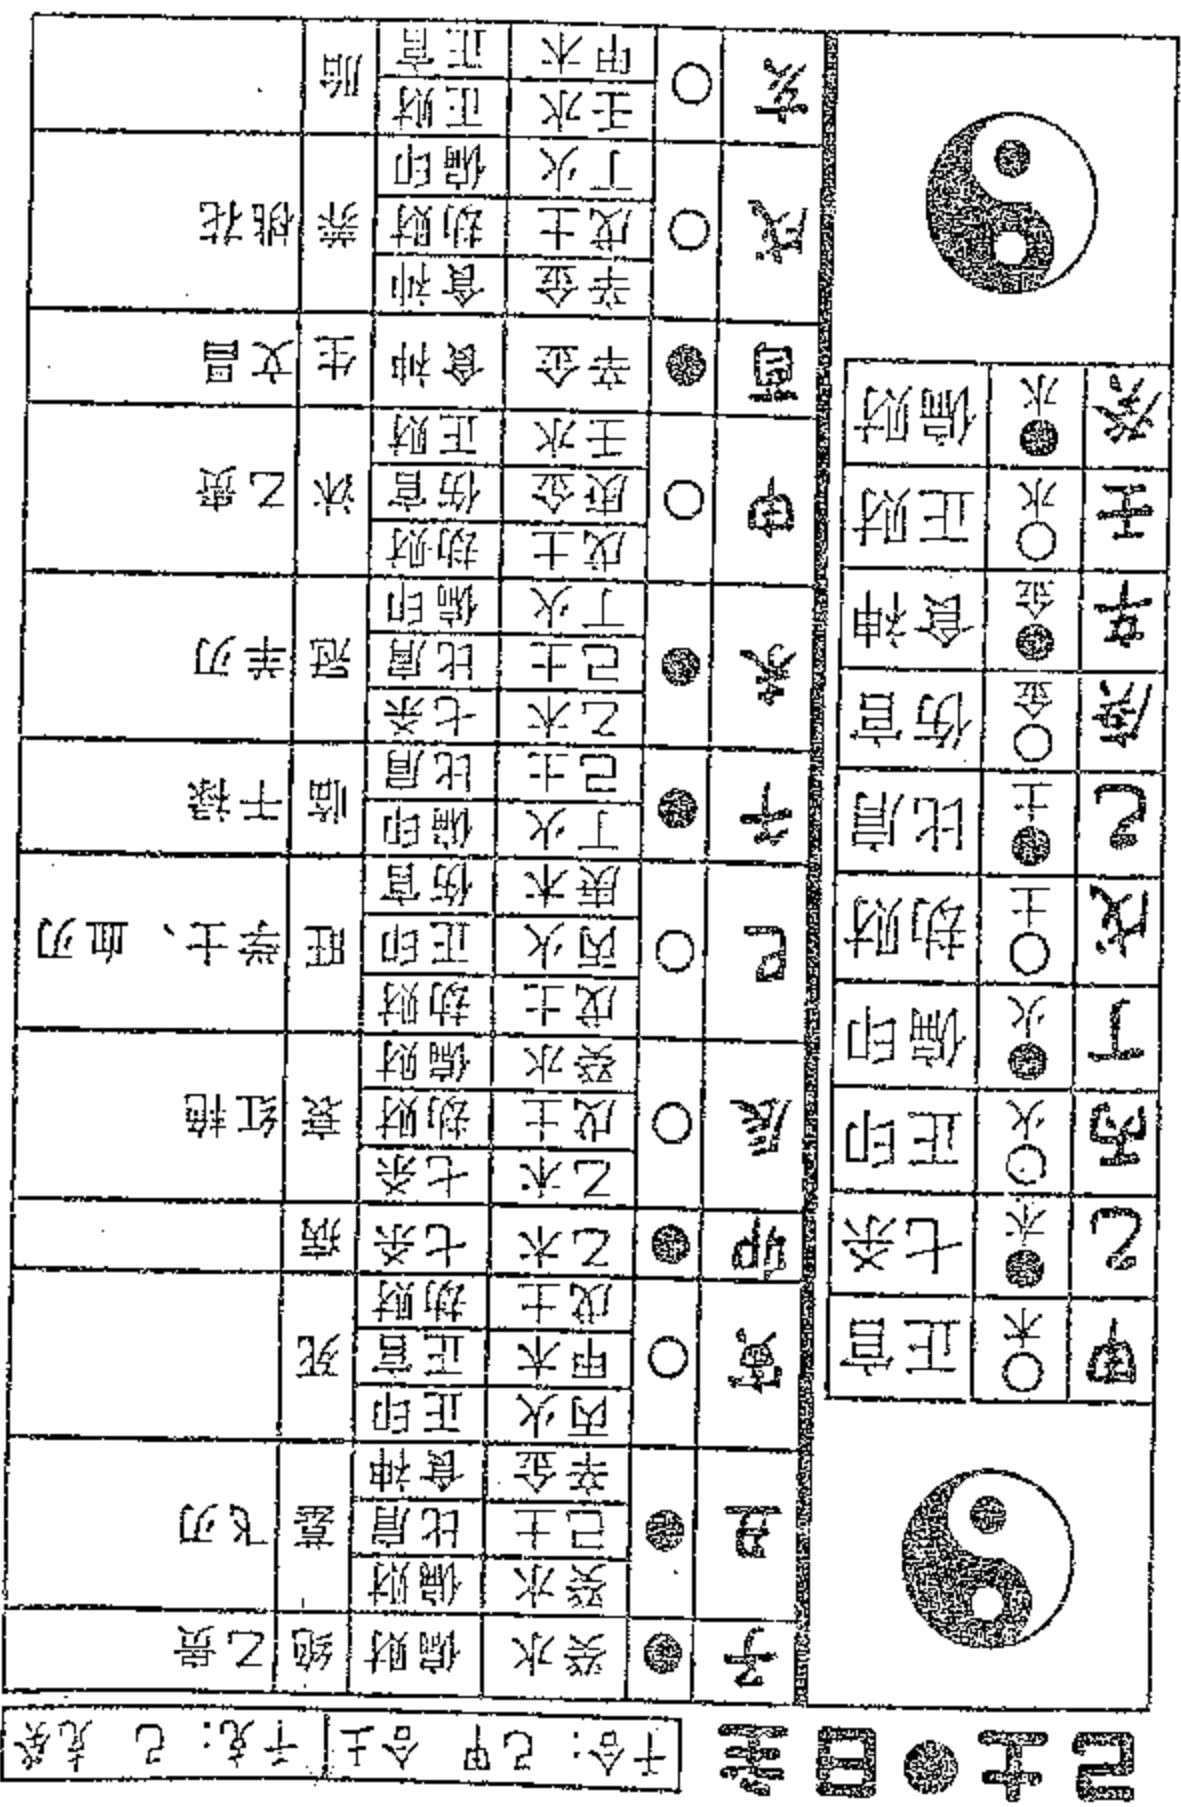 己土●日表
干合：己甲合土
干克：己克癸
甲 木 正官
乙 木 七杀
丙 火 正印
丁 火 偏印
戊 土 劫财
己 土 比肩
庚 金 伤官
辛 金 食神
壬 水 正财
癸 水 偏财
子 癸水 偏财 绝 乙贵
丑 癸水 偏财 墓 飞刃
己土 比肩
辛金 食神
寅 丙火 正印 死
甲木 正官
戊土 劫财
卯 乙木 七杀 病
辰 乙木 七杀 衰 红艳
戊土 劫财
癸水 偏财
巳 戊土 劫财 旺 学士、血刃
丙火 正印
庚木 伤官
午 丁火 偏印 临 干禄
己土 比肩
未 乙木 七杀 冠 羊刃
己土 比肩
丁火 偏印
申 戊土 劫财 沐 乙贵
庚金 伤官
壬水 正财
酉 辛金 食神 生 文昌
戌 辛金 食神 养 桃花
戊土 劫财
丁火 偏印
亥 壬水 正财 胎
甲木 正官